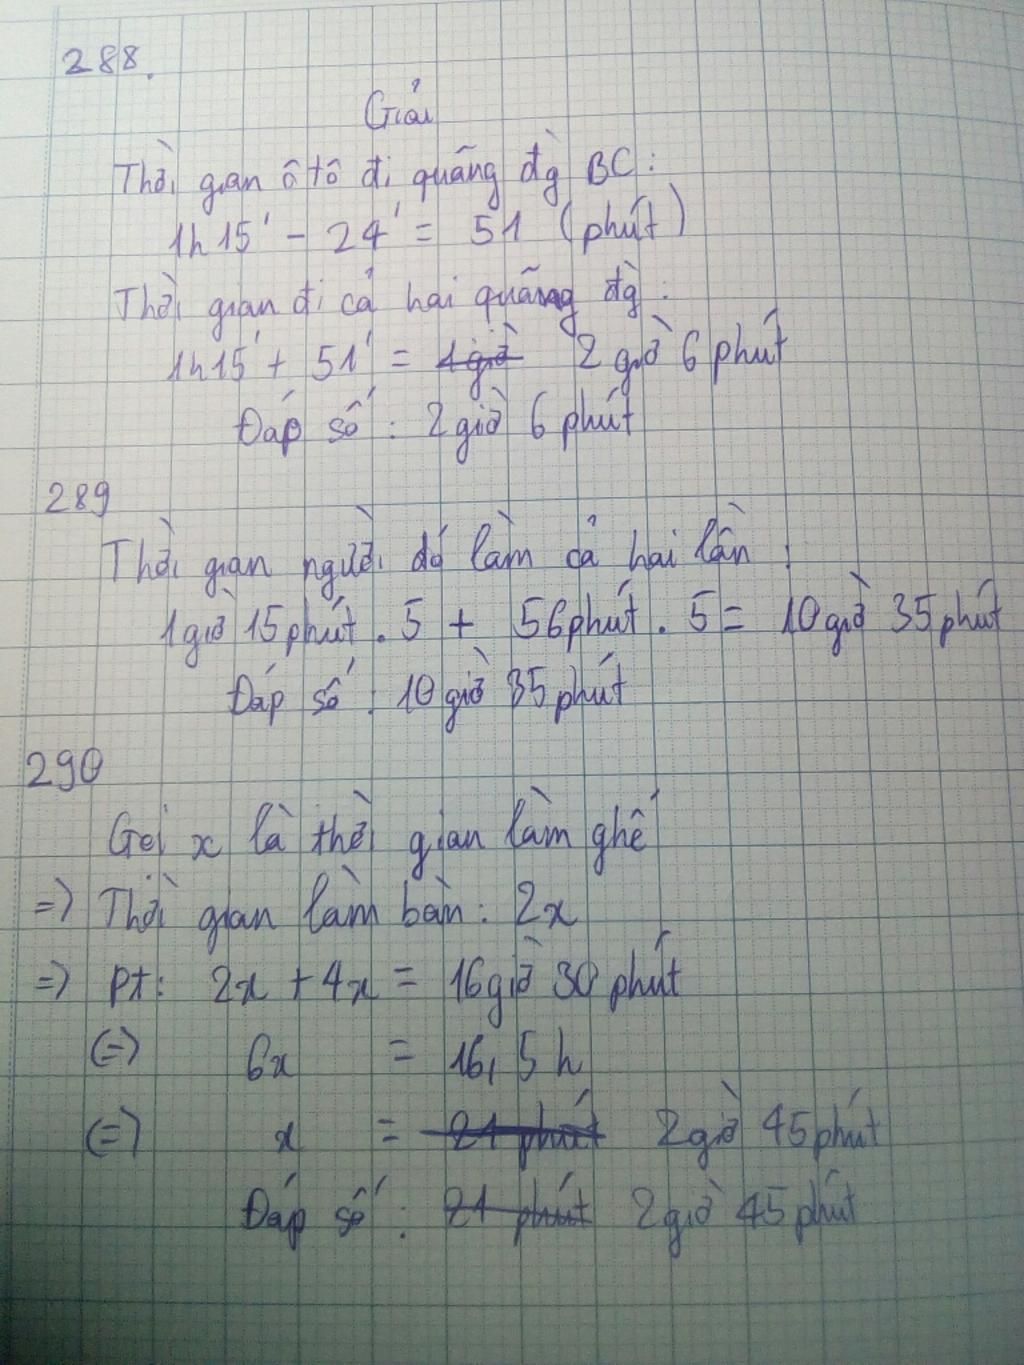 288.
Giải
Thời gian ô tô đi quãng đg BC:
1h15' - 24' = 51 (phút)
Thời gian đi cả hai quãng đg:
1h15' + 51' = 1giờ 2 giờ 6 phút
Đáp số: 2 giờ 6 phút
289
Thời gian người đó làm cả hai lần:
1giờ 15phút . 5 + 56phút . 5 = 10giờ 35phút
Đáp số: 10giờ 35phút
290
Gọi x là thời gian làm ghế
=> Thời gian làm bàn: 2x
=> pt: 2x + 4x = 16giờ 30 phút
(=) 6x = 16,5h
(=) x = 21 phút 2giờ 45phút
Đáp số: 21 phút 2giờ 45phút